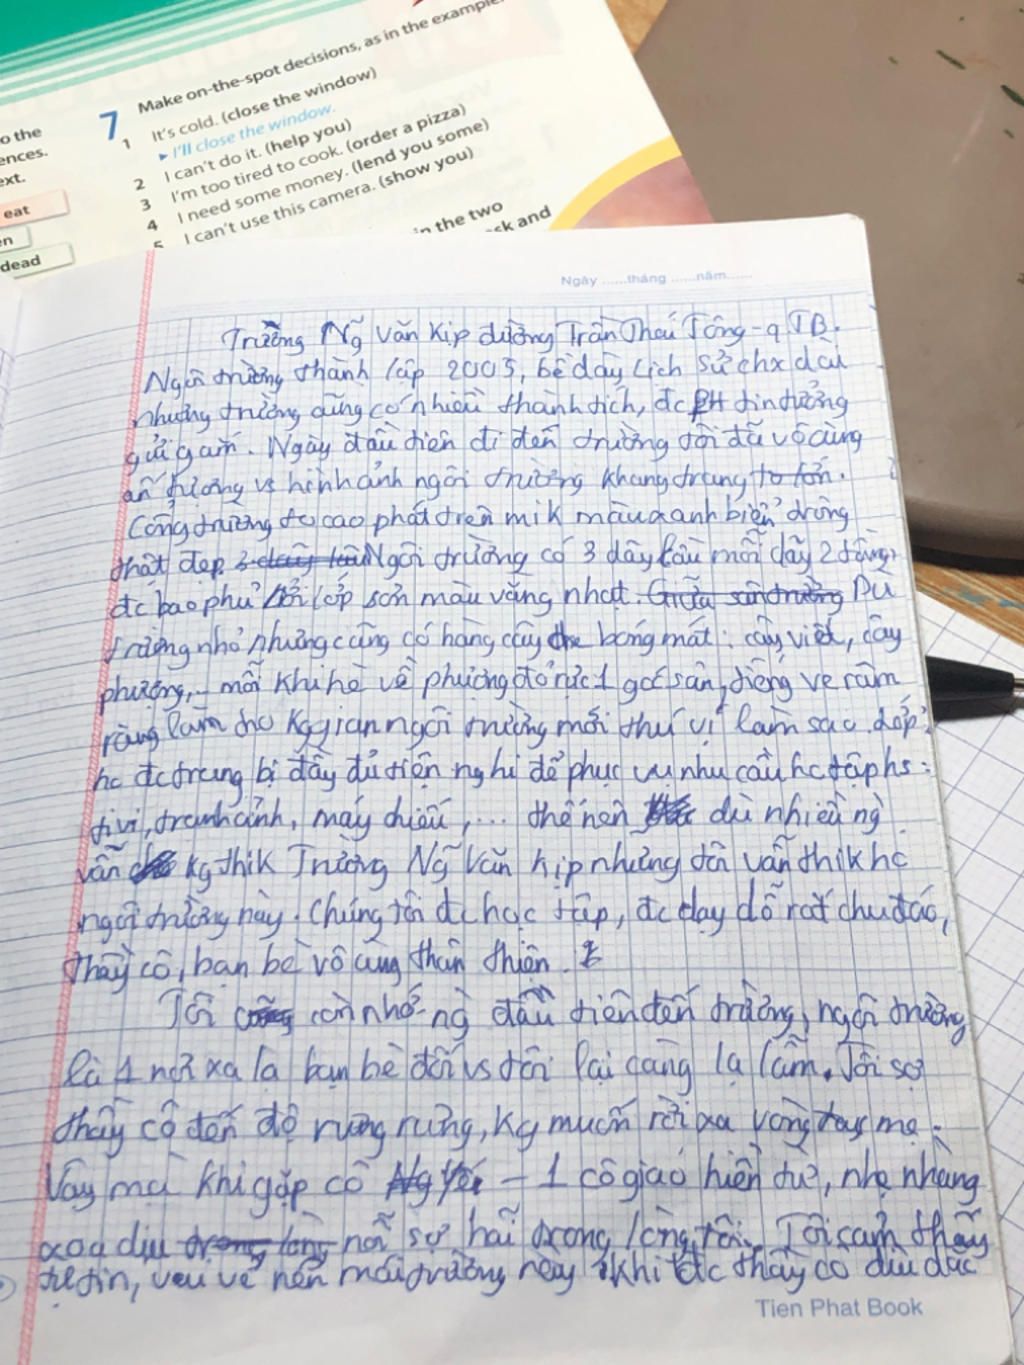 7 Make on-the-spot decisions, as in the example.
1 It's cold. (close the window)
▸ I'll close the window.
2 I can't do it. (help you)
3 I'm too tired to cook. (order a pizza)
4 I need some money. (lend you some)
5 I can't use this camera. (show you)
in the two
ck and
o the
ences.
ext.
eat
en
dead
Ngày ......tháng ......năm......
Trường Ng Văn Kịp đường Trần Thái Tông - q TB.
Ngôi trường thành lập 2005, bề dày lịch sử chx dài
nhưng trường cũng có nhiều thành tích, đc PH tin tưởng
gửi gắm. Ngày đầu tiên đi đến trường tôi đã vô cùng
ấn tượng vs hình ảnh ngôi trường khang trang to lớn.
Cổng trường to cao phát trên mik màu xanh biển trông
thật đẹp 3 dãy lầu Ngôi trường có 3 dãy lầu mỗi dãy 2 tầng,
đc bao phủ bởi lớp sơn màu vàng nhạt. Giữa sân trường Dù
trường nhỏ nhưng cũng có hàng cây che bóng mát: cây viết, cây
phượng,... mỗi khi hè về phượng đỏ rực 1 góc sân, tiếng ve râm
ràng làm cho kg gian ngôi trường mới thú vị làm sao. Lớp
hc đc trang bị đầy đủ tiện nghi để phục vụ nhu cầu hc tập hs:
tivi, tranh ảnh, máy chiếu,... thế nên dù nhiều ng
vẫn kg thik Trường Ng Văn Kịp nhưng tôi vẫn thik hc
ngôi trường này. Chúng tôi đc học tập, đc dạy dỗ rất chu đáo,
thầy cô, bạn bè vô cùng thân thiện.
Tôi còn nhớ ng đầu tiên đến trường, ngôi trường
là 1 nơi xa lạ bạn bè đối vs tôi lại càng lạ lẫm. Tôi sợ
thầy cô đến độ rưng rưng, kg muốn rời xa vòng tay mẹ.
Vậy mà khi gặp cô - 1 cô giáo hiền từ, nhẹ nhàng
xoa dịu trong lòng nỗi sợ hãi trong lòng tôi. Tôi cảm thấy
tự tin, vui vẻ nên mái trường này khi đc thầy cô dìu dắc
Tien Phat Book